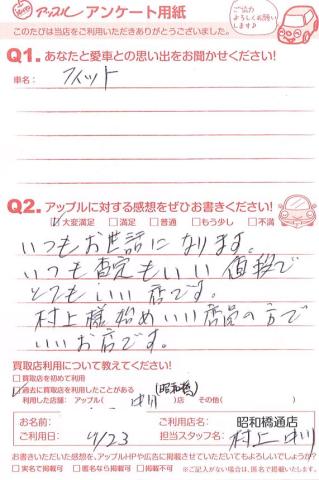 アップル アンケート用紙
ご協力
よろしくお願い
します♪
このたびは当店をご利用いただきありがとうございました。
Q1. あなたと愛車との思い出をお聞かせください!
車名： フィット
Q2. アップルに対する感想をぜひお書きください!
☑大変満足 □満足 □普通 □もう少し □不満
いつもお世話になります。
いつも査定もいい値段で
とてもいい店です。
村上様始めいい店員の方で
いいお店です。
買取店利用について教えてください!
□買取店を初めて利用
☑過去に買取店を利用したことがある (昭和橋)
利用した店舗： アップル( 中川 )店 その他( )
お名前：
ご利用日： 4/23
ご利用店名： 昭和橋通店
担当スタッフ名： 村上 中川
お書きいただいた感想を、アップルHPや広告に掲載させていただいてもよろしいでしょうか?
□実名で掲載可 □匿名なら掲載可 □掲載不可 ※ご記入がない場合は、匿名で掲載いたします。